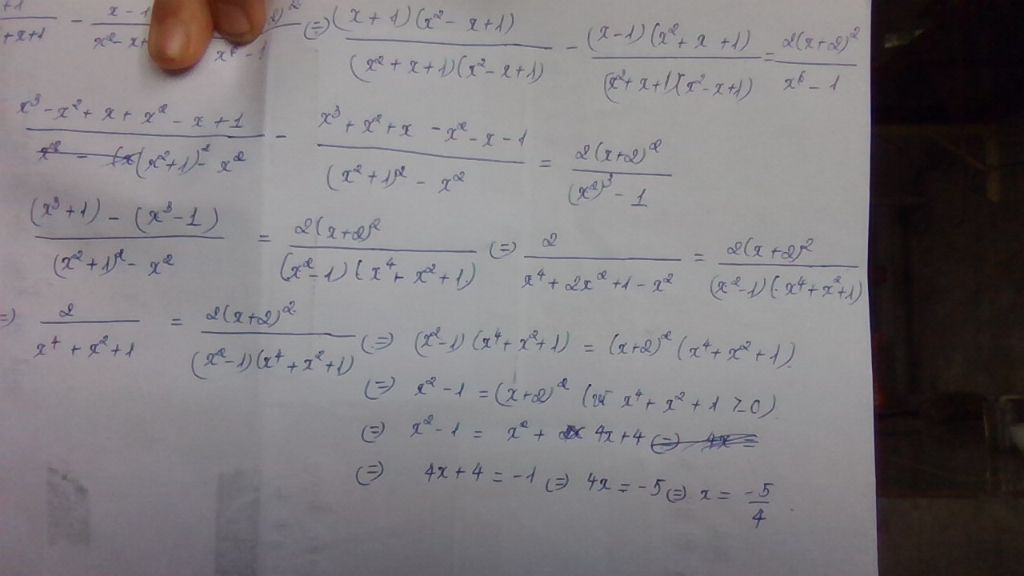 +1/+x+1 − x-1/x²-x+ )²/x⁶-1 (=) (x+1)(x²-x+1)/(x²+x+1)(x²-x+1) − (x-1)(x²+x+1)/(x²+x+1)(x²-x+1) = 2(x+2)²/x⁶-1
x³-x²+x+x²-x+1/(x²+1)²-x² − x³+x²+x-x²-x-1/(x²+1)²-x² = 2(x+2)²/(x²)³-1
(x³+1)-(x³-1)/(x²+1)²-x² = 2(x+2)²/(x²-1)(x⁴+x²+1) (=) 2/x⁴+2x²+1-x² = 2(x+2)²/(x²-1)(x⁴+x²+1)
=) 2/x⁴+x²+1 = 2(x+2)²/(x²-1)(x⁴+x²+1) (=) (x²-1)(x⁴+x²+1) = (x+2)²(x⁴+x²+1).
(=) x²-1 = (x+2)² (vì x⁴+x²+1 >0)
(=) x²-1 = x²+ 4x+4
(=) 4x+4 = -1 (=) 4x = -5 (=) x = -5/4.